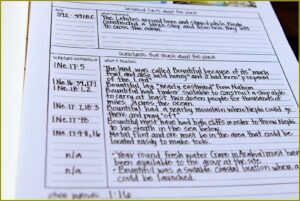 Historical facts about this place
592-591 B.C.
The Lehites arrived here and stayed while Nephi
constructed a large ship and then here they left
to cross the ocean.
Scriptures that teach about this place
1 Ne. 17:5
The land was called Bountiful because of its "much
fruit and also wild honey" and had been prepared by the Lord.
1 Ne. 16-34, 17:1
Bountiful lay "nearly eastward" from Nahom
1 Ne. 18:1, 2
Bountiful had timber suitable to construct a ship able
to carry at least two dozen people for thousands of
miles across the ocean.
1 Ne. 17:7, 18:3
Bountiful had a nearby mountain where Nephi could go
and pray "oft."
1 Ne. 17:48
Bountiful must have had high cliffs in order to throw Nephi
to his death in the sea below.
1 Ne. 17:9-11, 16
Metal, flint and ore must be in the area that could be
located easily to make tools.
n/a
· Year round fresh water (rare in Arabia) must have
been available to the group at the site.
n/a
· Bountiful was a suitable coastal location where a
could be launched.
1:16